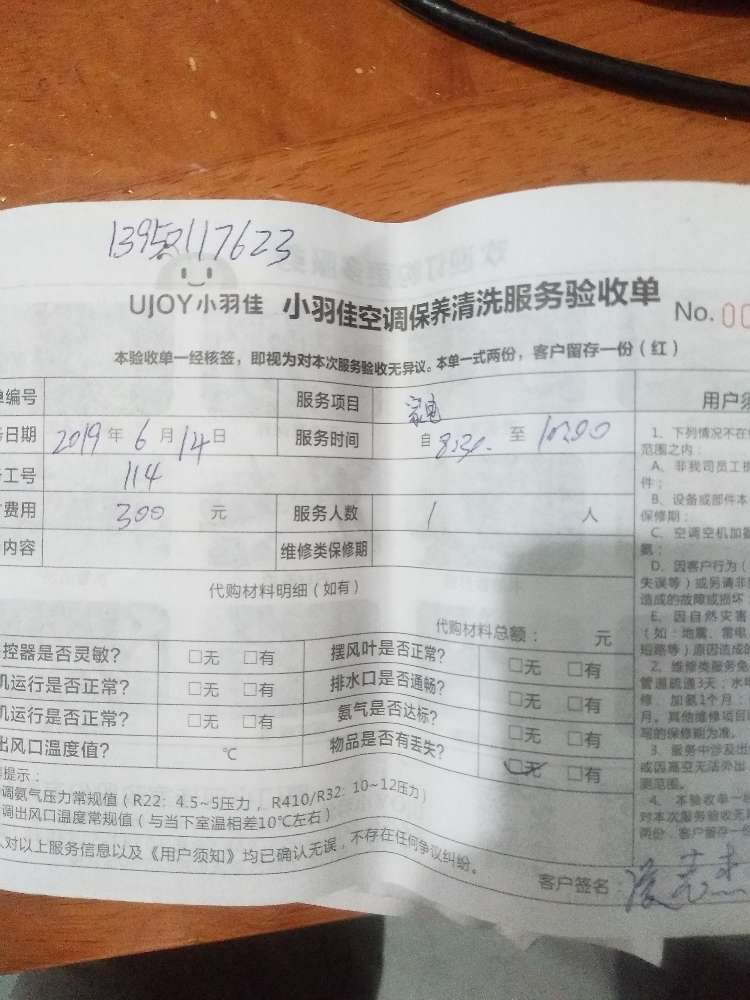 13950117623
UJOY小羽佳 小羽佳空调保养清洗服务验收单 No. 00
本验收单一经核签，即视为对本次服务验收无异议。本单一式两份，客户留存一份（红）
单编号 服务项目 家电 用户须
务日期 2019年6月14日 服务时间 自8:30.至10:00
工号 114
费用 300 元 服务人数 1 人
内容 维修类保修期
代购材料明细（如有）
代购材料总额： 元
控器是否灵敏？ □无 □有 摆风叶是否正常？ □无 □有
机运行是否正常？ □无 □有 排水口是否通畅？ □无 □有
机运行是否正常？ □无 □有 氨气是否达标？ □无 □有
出风口温度值？ ℃ 物品是否有丢失？ □无 □有
提示：
调氨气压力常规值（R22：4.5~5压力，R410/R32：10~12压力）
调出风口温度常规值（与当下室温相差10℃左右）
人对以上服务信息以及《用户须知》均已确认无误，不存在任何争议纠纷。
客户签名：
1、下列情况不在
范围之内：
A、非我司员工
件；
B、设备或部件本
保修期；
C、空调空机加氨
氨；
D、因客户行为（
失误等）或另请非
造成的故障或损坏
E、因自然灾害
（如：地震、雷电
短路等）原因造成的
2、维修类服务免
管道疏通3天；水
修、加氨1个月；
月。其他维修项目
写的保修期为准。
3、服务中涉及出
或因高空无法外出
更范围。
4、本验收单一
对本次服务验收无
两份，客户留存一